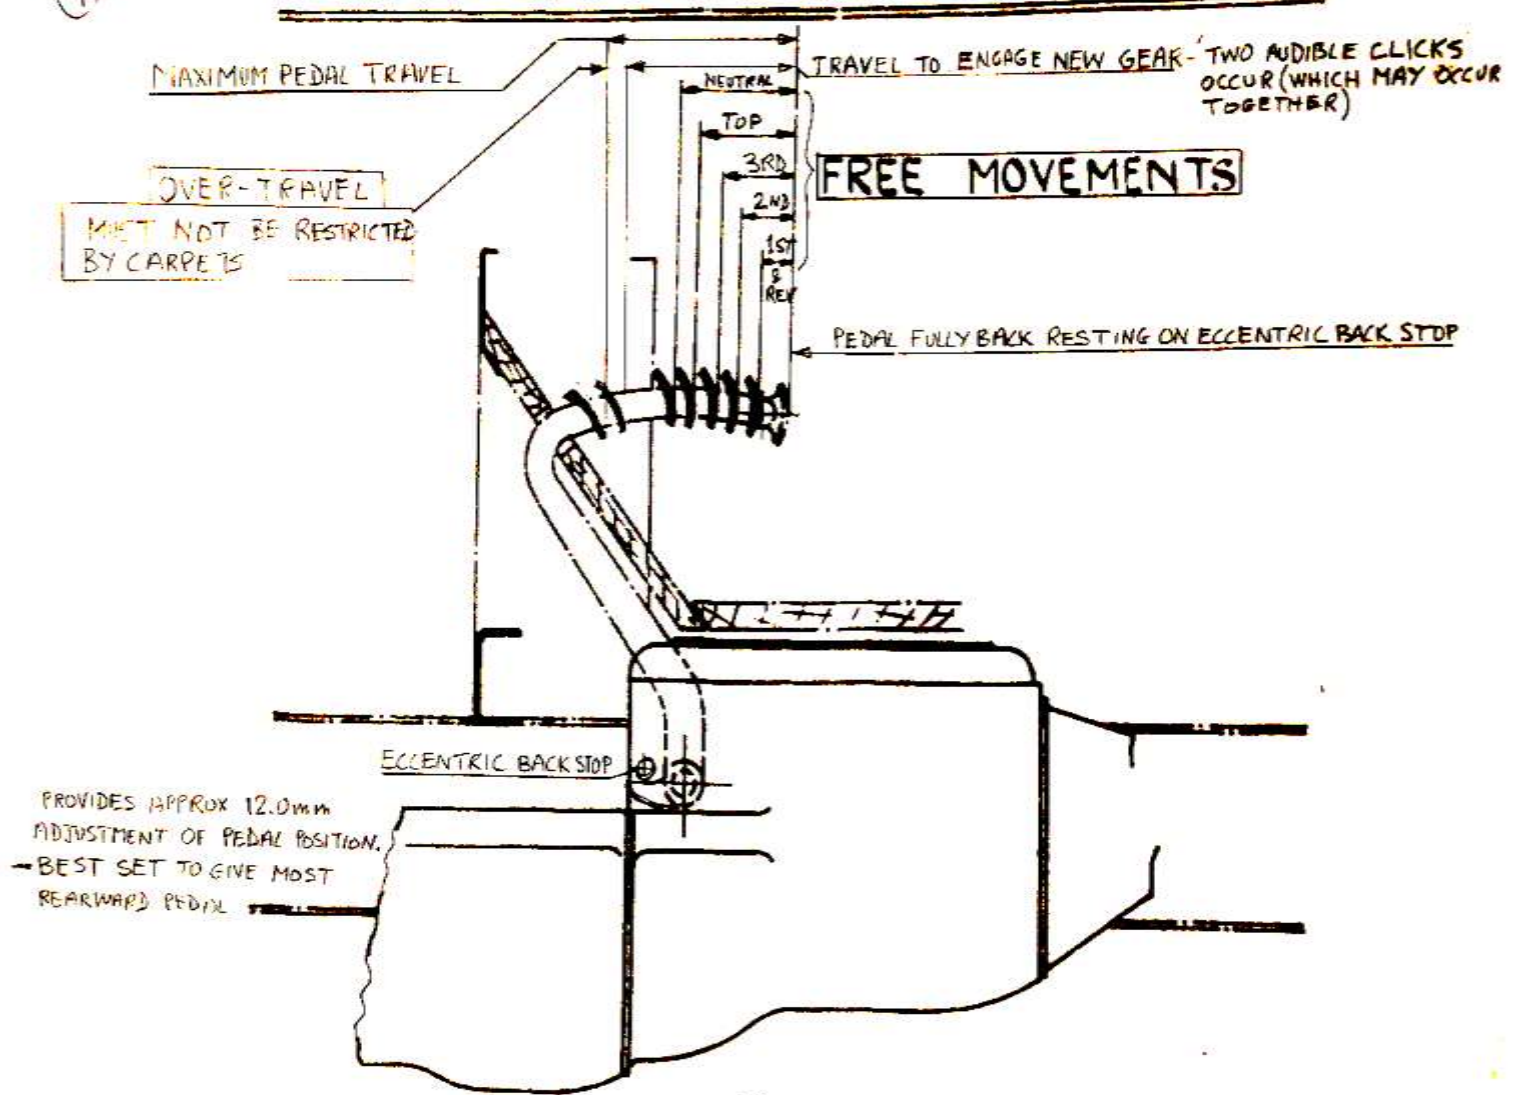 MAXIMUM PEDAL TRAVEL
TRAVEL TO ENGAGE NEW GEAR - TWO AUDIBLE CLICKS
OCCUR (WHICH MAY OCCUR
TOGETHER)
NEUTRAL
TOP
3RD
2ND
1ST
&
REV
FREE MOVEMENTS
OVER-TRAVEL
MUST NOT BE RESTRICTED
BY CARPETS
PEDAL FULLY BACK RESTING ON ECCENTRIC BACK STOP
ECCENTRIC BACK STOP
PROVIDES APPROX 12.0mm
ADJUSTMENT OF PEDAL POSITION.
- BEST SET TO GIVE MOST
REARWARD PEDAL